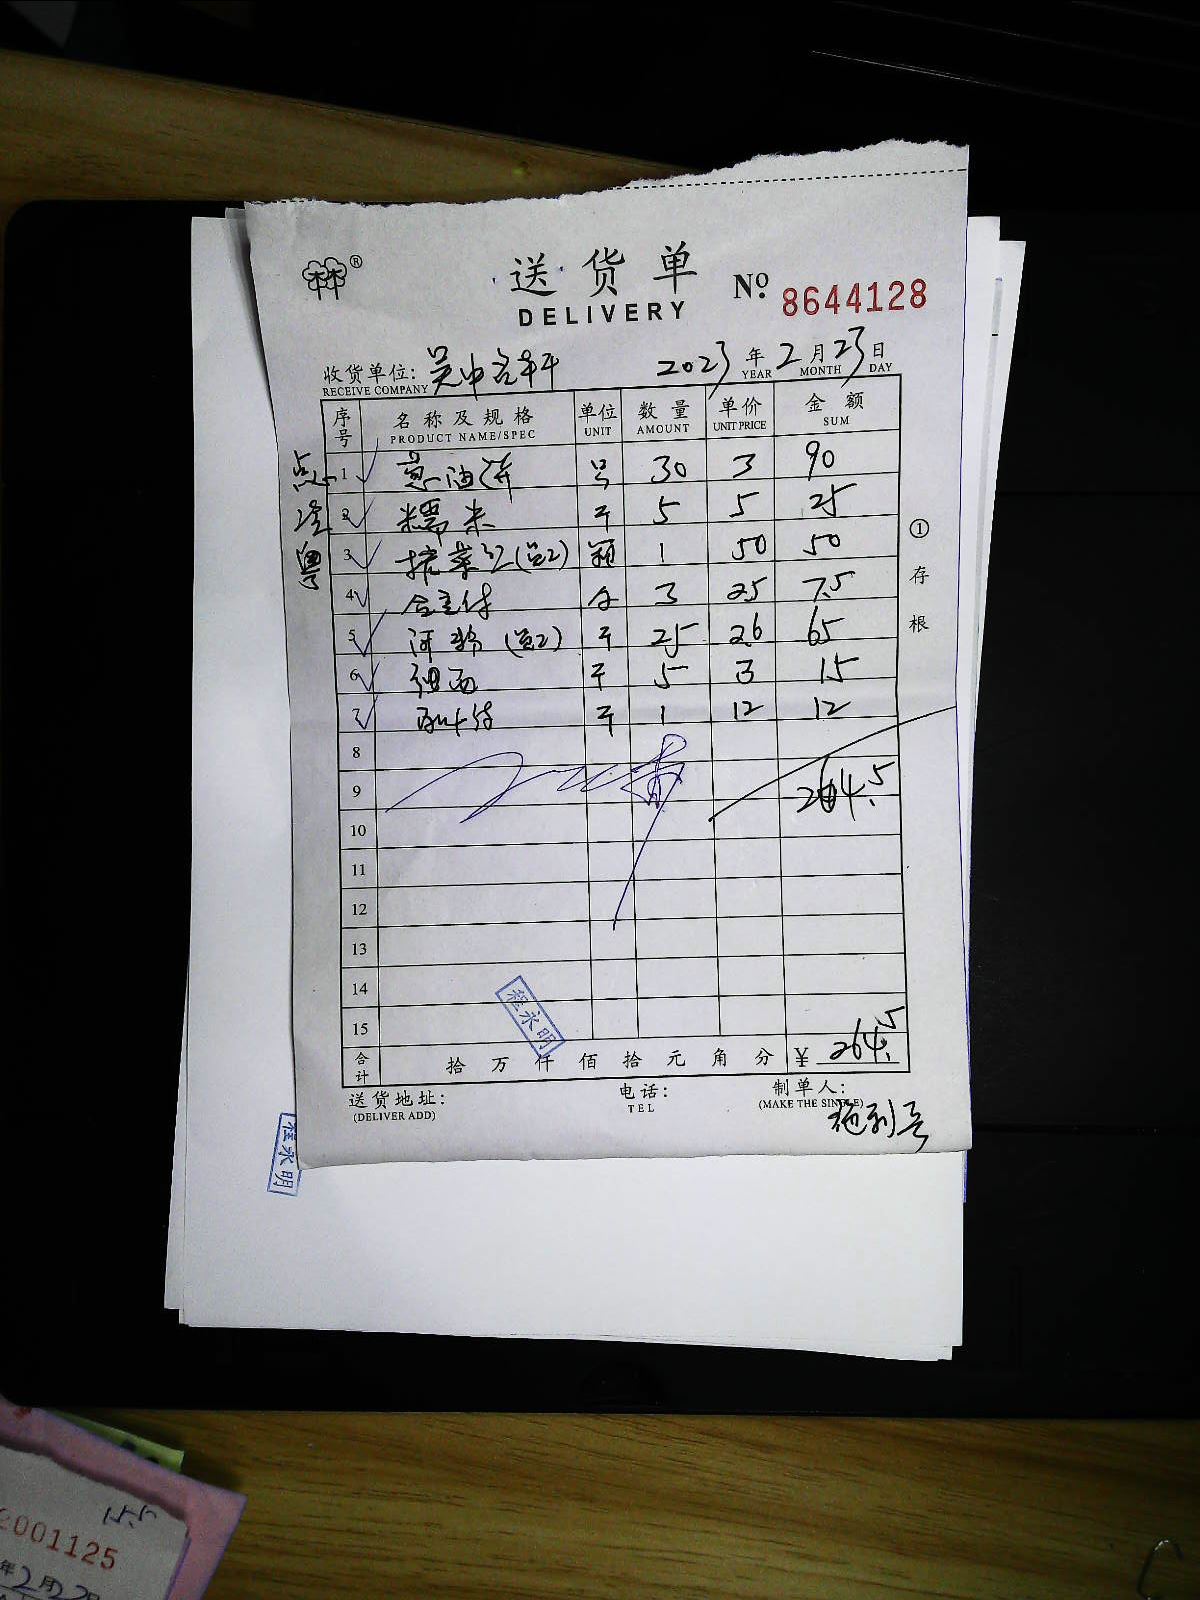 林®
送货单
DELIVERY
No. 8644128
收货单位: 吴中 2023年2月23日
RECEIVE COMPANY YEAR MONTH DAY
序号 名称及规格 单位 数量 单价 金额
PRODUCT NAME/SPEC UNIT AMOUNT UNIT PRICE SUM
1 葱油饼 30 3 90
2 糯米 斤 5 5 25
3 1 50 50
4 3 2.5 7.5
5 河粉 斤 25 2.6 65
6 细面 斤 5 3 15
7 斤 1 12 12
8
9 264.5
10
11
12
13
14
15
合计 拾 万 仟 佰 拾 元 角 分 ¥ 264.5
送货地址: 电话: 制单人:
(DELIVER ADD) TEL (MAKE THE SINGLE)
点
①存根
程永明
程永明
2001125
年2月22日